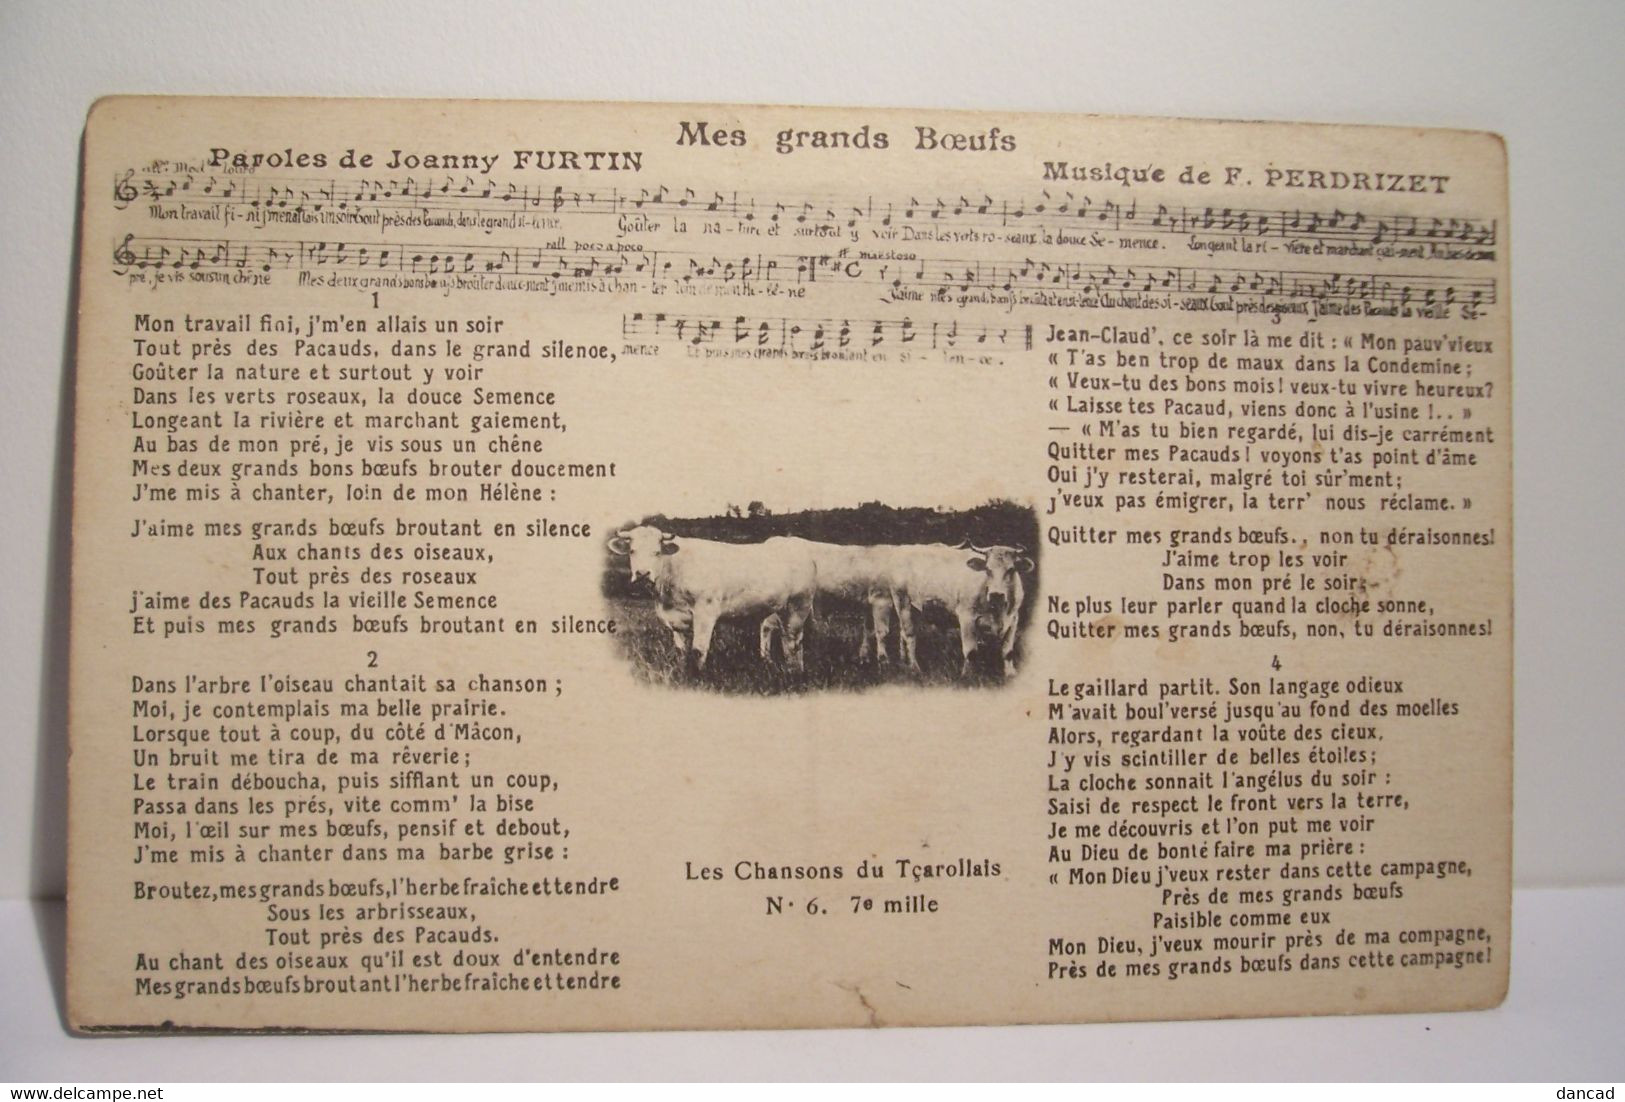 Mes grands Bœufs
Paroles de Joanny FURTIN
Musique de F. PERDRIZET
Mon travail fi-ni j'm'en allais un soir Tout près des Pacauds, dans le grand si-lence. Goûter la na-ture et surtout y voir Dans les verts ro-seaux, la douce Se-mence. Longeant la ri-vière et marchant gai-ment Au bas de mon
rall poco a poco
ff maestoso
pré, je vis sous un chêne Mes deux grands bons bœufs brouter douce-ment J'me mis à chan-ter loin de mon Hé-lè-ne J'aime mes grands bœufs broutant en si-lence Au chant des oi-seaux Tout près des roseaux J'aime des Pacauds la vieille Se-
mence Et puis mes grands bœufs broutant en si-len-ce.
1
Mon travail fini, j'm'en allais un soir
Tout près des Pacauds, dans le grand silence,
Goûter la nature et surtout y voir
Dans les verts roseaux, la douce Semence
Longeant la rivière et marchant gaiement,
Au bas de mon pré, je vis sous un chêne
Mes deux grands bons bœufs brouter doucement
J'me mis à chanter, loin de mon Hélène :
J'aime mes grands bœufs broutant en silence
Aux chants des oiseaux,
Tout près des roseaux
j'aime des Pacauds la vieille Semence
Et puis mes grands bœufs broutant en silence
2
Dans l'arbre l'oiseau chantait sa chanson ;
Moi, je contemplais ma belle prairie.
Lorsque tout à coup, du côté d'Mâcon,
Un bruit me tira de ma rêverie ;
Le train déboucha, puis sifflant un coup,
Passa dans les prés, vite comm' la bise
Moi, l'œil sur mes bœufs, pensif et debout,
J'me mis à chanter dans ma barbe grise :
Broutez, mes grands bœufs, l'herbe fraîche et tendre
Sous les arbrisseaux,
Tout près des Pacauds.
Au chant des oiseaux qu'il est doux d'entendre
Mes grands bœufs broutant l'herbe fraîche et tendre
Les Chansons du Tçarollais
N· 6. 7e mille
3
Jean-Claud', ce soir là me dit : « Mon pauv'vieux
« T'as ben trop de maux dans la Condemine ;
« Veux-tu des bons mois ! veux-tu vivre heureux?
« Laisse tes Pacaud, viens donc à l'usine !.. »
— « M'as tu bien regardé, lui dis-je carrément
Quitter mes Pacauds ! voyons t'as point d'âme
Oui j'y resterai, malgré toi sûr'ment ;
j'veux pas émigrer, la terr' nous réclame. »
Quitter mes grands bœufs.. non tu déraisonnes!
J'aime trop les voir
Dans mon pré le soir ;
Ne plus leur parler quand la cloche sonne,
Quitter mes grands bœufs, non, tu déraisonnes!
4
Le gaillard partit. Son langage odieux
M'avait boul'versé jusqu'au fond des moelles
Alors, regardant la voûte des cieux,
J'y vis scintiller de belles étoiles ;
La cloche sonnait l'angélus du soir :
Saisi de respect le front vers la terre,
Je me découvris et l'on put me voir
Au Dieu de bonté faire ma prière :
« Mon Dieu j'veux rester dans cette campagne,
Près de mes grands bœufs
Paisible comme eux
Mon Dieu, j'veux mourir près de ma compagne,
Près de mes grands bœufs dans cette campagne!
www.delcampe.net
dancad